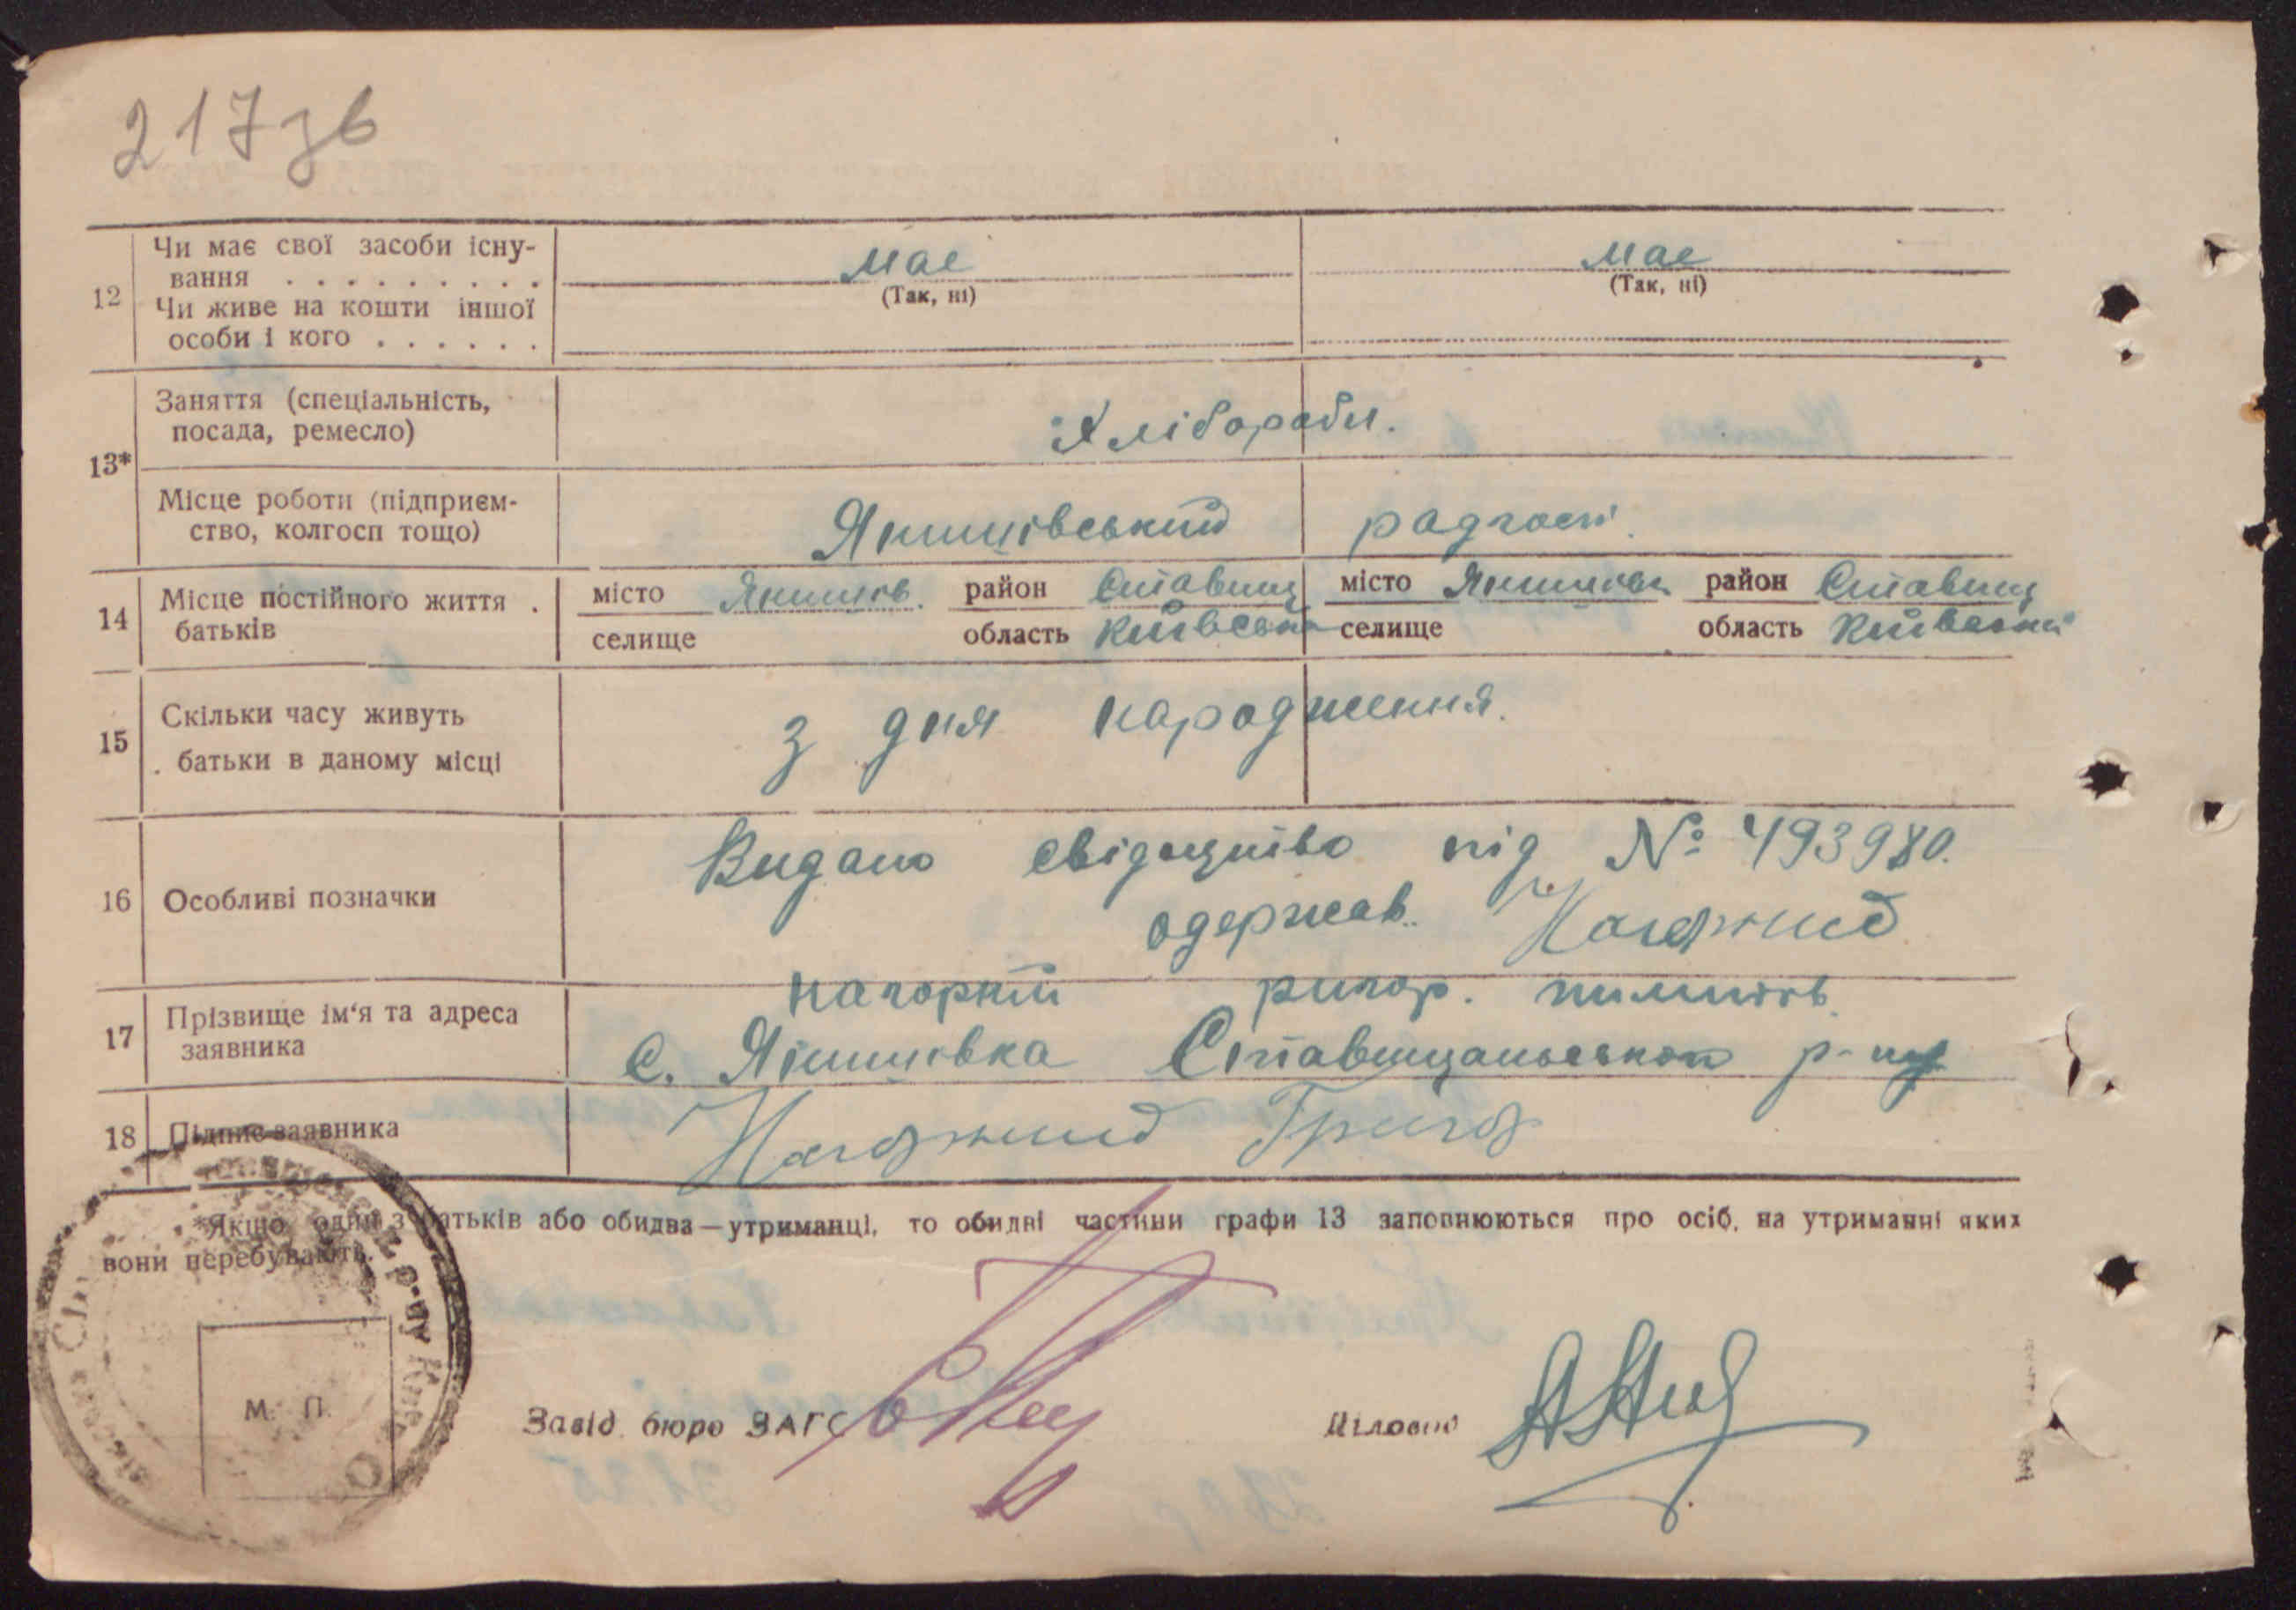 217зв
12 Чи має свої засоби існу-
вання . . . . . . . . . має має
(Так, ні) (Так, ні)
Чи живе на кошти іншої
особи і кого . . . . . .
Заняття (спеціальність,
посада, ремесло) Хлібороби.
13*
Місце роботи (підприєм-
ство, колгосп тощо) Янишівський радгосп.
14 Місце постійного життя .
батьків
місто Янишів. район Ставищ місто Янишівк район Ставищ
селище область Київська селище область Київській
15 Скільки часу живуть
батьки в даному місці
з дня народження.
16 Особливі позначки
Видано свідоцтво під № 493980.
одержав. Нагорний
17 Прізвище ім'я та адреса
заявника
нагорний ригор. пилипів.
С. Янишівка Ставищанського р-ну
18 Підпис заявника Нагорний Григор
*Якщо один з батьків або обидва—утриманці, то обидві частини графи 13 заповнюються про осіб, на утриманні яких
вони перебувають.
М. П.
Завід. бюро ЗАГС Діловод